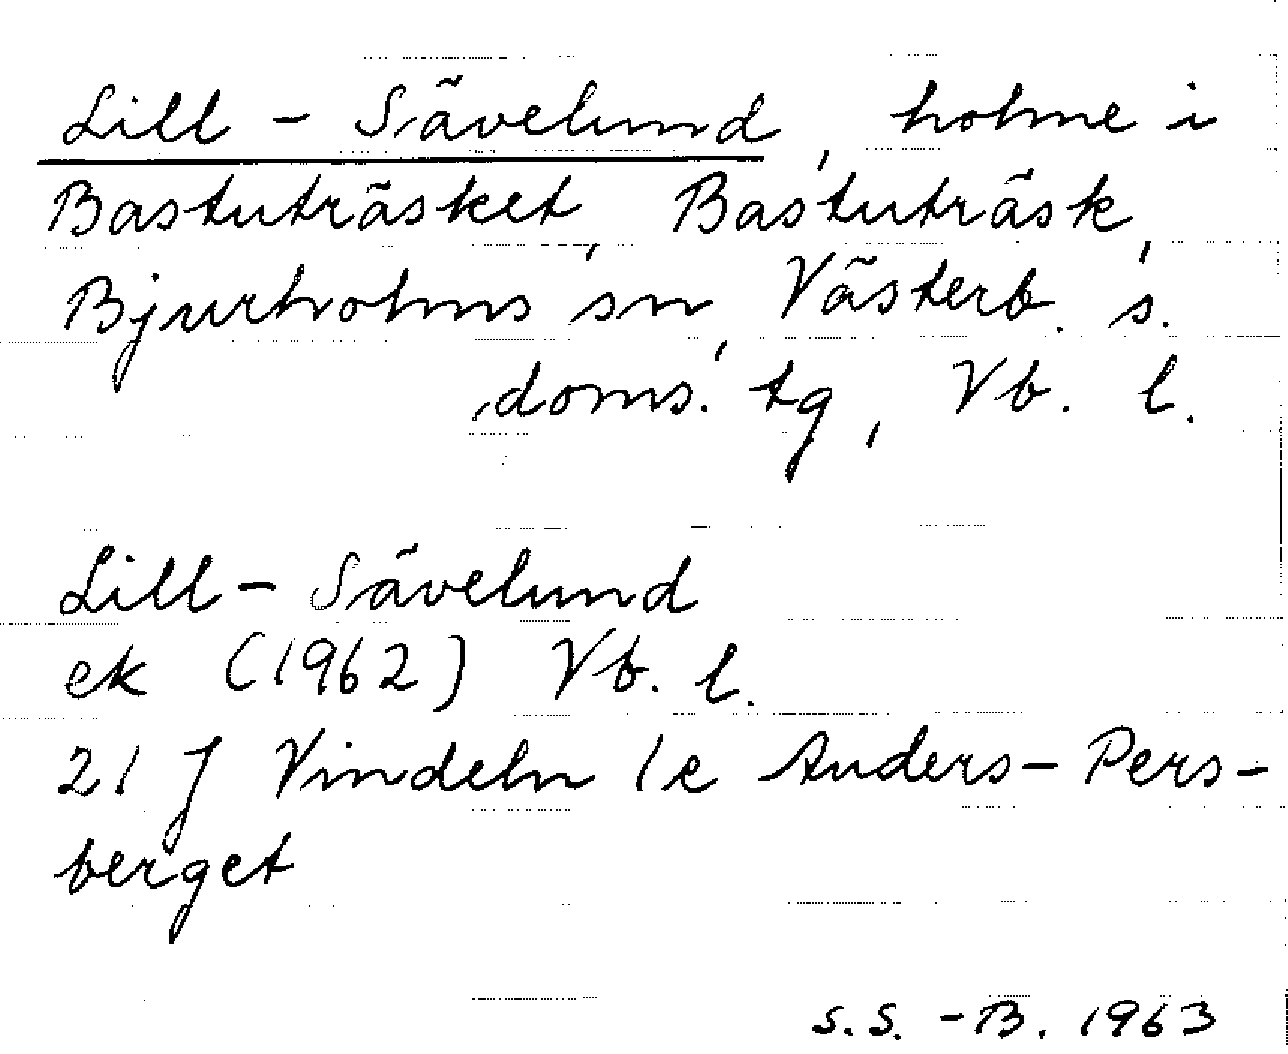 Lill-Sävelund, holme i
Bastuträsket, Bastuträsk,
Bjurholms sn, Västerb. s.
doms. tg, Vb. l.
Lill-Sävelund
ek (1962) Vb. l.
21 J Vindeln 1e Anders-Pers-
berget
S.S.-B. 1963